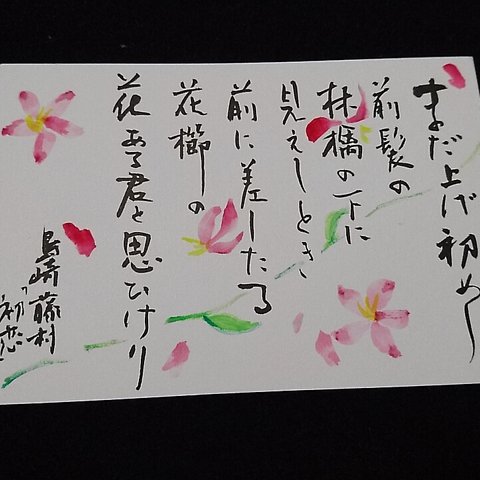 まだ上げ初めし
前髪の
林檎の下に
見えしとき
前に差したる
花櫛の
花ある君と思ひけり
島崎藤村
「初恋」